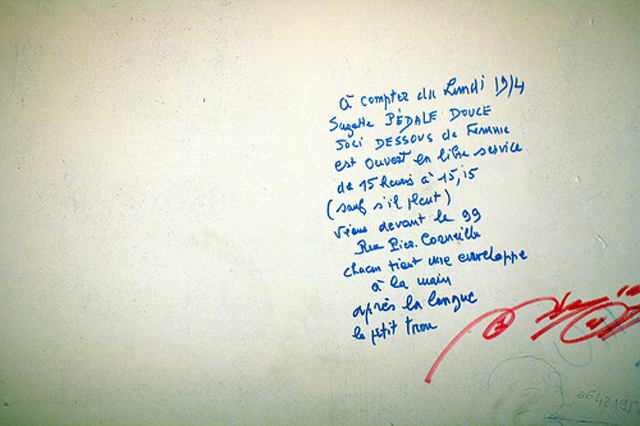 à compter du Lundi 19/4
Suzette PÉDALE DOUCE
Joli DESSOUS de Femme
est ouvert en libre service
de 15 heures à 15,15
(sauf s'il pleut)
Viens devant le 99
Rue Pier. Corneille
chacun tient une enveloppe
à la main
après la langue
le petit trou